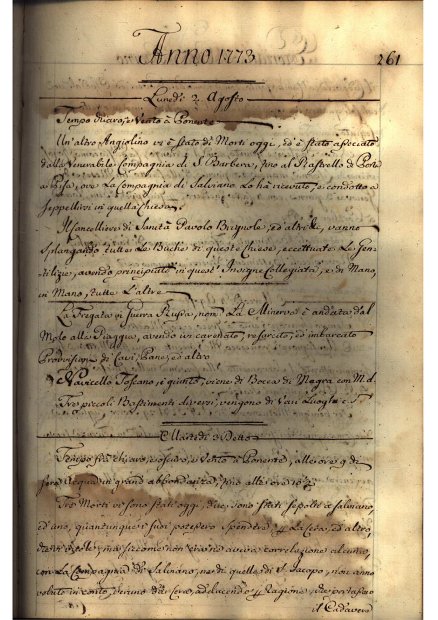 Anno 1773
261
Lunedì 2 Agosto
Tempo chiaro, e Vento à Ponente
Un'altro Angiolino vi è stato di Morti oggi, ed è stato associato
dalla Venerabile Compagnia di S. Barbera, fino al Rastrello di Porta
a Pisa, ove la Compagnia di Salviano lo hà ricevuto, e condotto a
seppellirsi in quella Chiesa
Il Cancelliere di Sanità Pavolo Brignole, ed altri, vanno
tutte le Buche di queste Chiese, eccettuate le Gen-
tilizie, avendo principiato in quest' Insigne Collegiata, e di Mano,
in Mano, tutte l'altre
La Fregata di Guerra Russa, nom. La Minerva è andata dal
Molo alla Piaggia, avendo quì carenato, resarcito, ed imbarcato
Provisioni di Pane, ed altro
Navicello Toscano, quì giunto, viene di Bocca di Magra con M. d.
Tre piccoli Bastimenti diversi, vengono di Vari Luoghi
Martedì 3 Detto
Tempo frà chiaro, e oscuro, e Vento à Ponente, alle ore 9 di
sera Acqua in grand' abbondanza, fino alle ore 10
Trè Morti vi sono stati oggi, due, sono stati sepolti a Salviano,
ed uno, quantunque i suoi potessero spendere la Cera, d'altro,
mà siccome non era nè aveva correlazione alcuna,
con La Compagnia di Salviano, nè di quella di S. Jacopo, non anno
voluto in conto, veruno dar Cera, adducendo Ragione, che portasse
il Cadavero